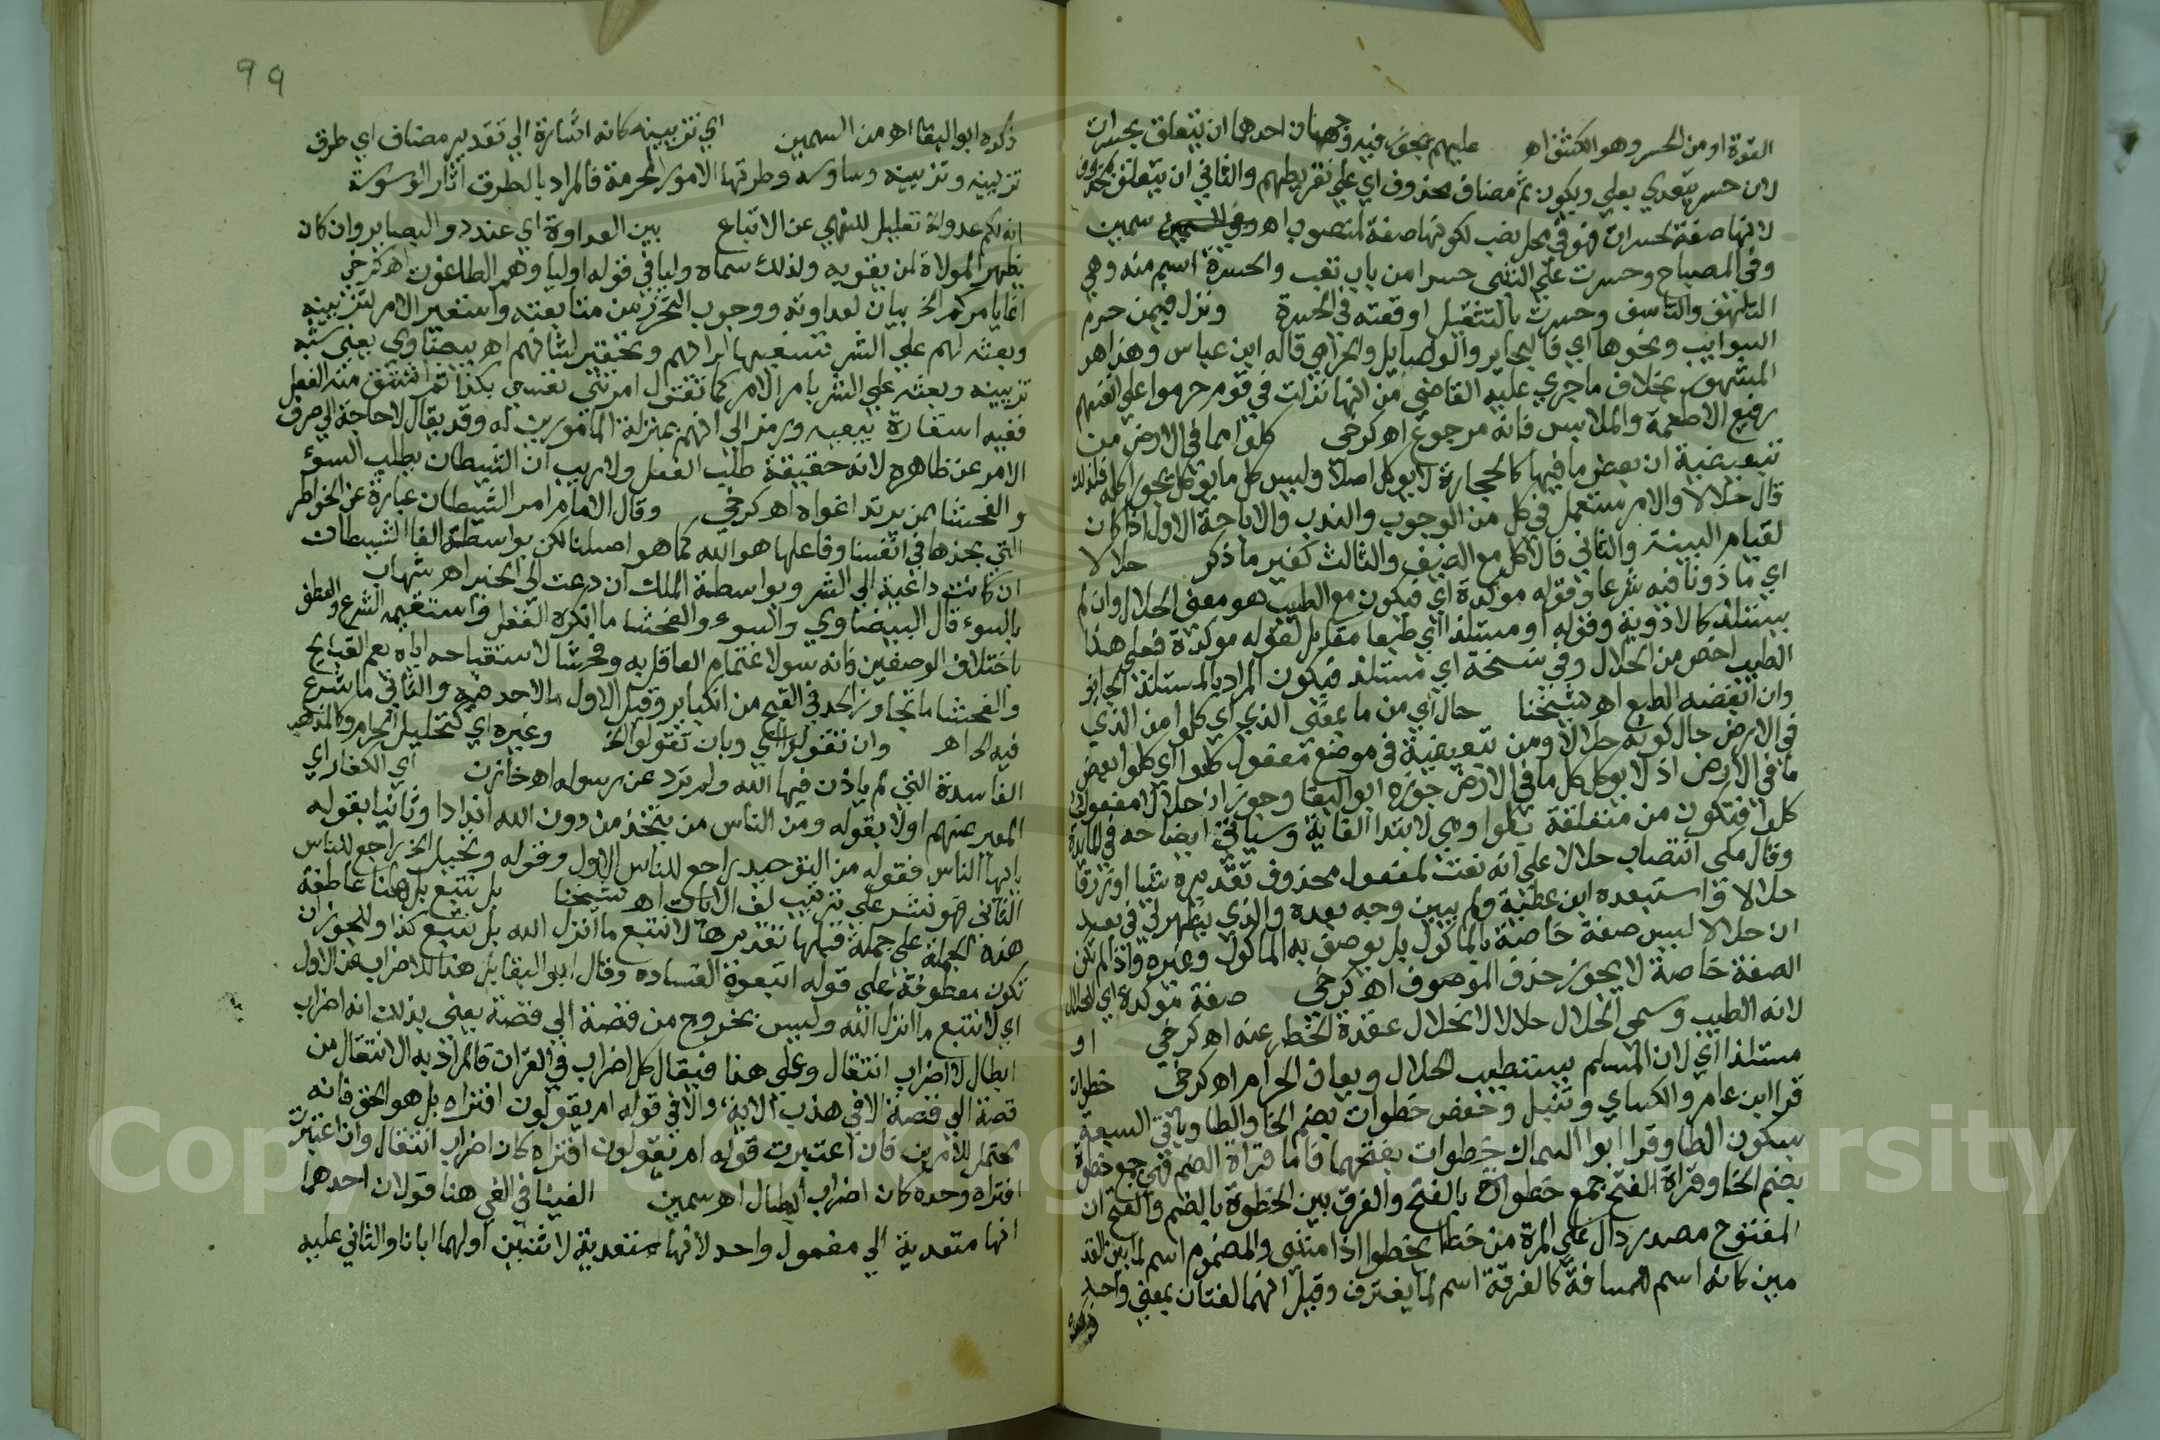 القوة او من الحسر وهو الكشف اه عليهم يجوز فيه وجهان احدهما ان يتعلق بحسرات
لان حسر يتعدي بعلي ويكون ثم مضاف محذوف اي علي تفريطهم والثاني ان يتعلق بمحذوف
لانها صفة لحسرات فهو في محل نصب لكونها صفة لمنصوب اه سمين
وفي المصباح وحسرت علي الشي حسرا من باب تعب والحسرة اسم منه وهي
التلهف والتاسف وحسرت بالتثقيل اوقعته في الحسرة ونزل فيمن حرم
السوايب ونحوها اي فالبحاير والوصايل والحوامي قاله ابن عباس وهذا هو
المشهور بخلاف ما جري عليه القاضي من انها نزلت في قوم حرموا علي انفسهم
رفيع الاطعمة والملابس فانه مرجوع اه كرخي كلوا مما في الارض من
تبعيضية ان بعض ما فيها كالحجارة لا يوكل اصلا وليس كل ما يوكل يجوز اكله فلذلك
قال حلالا والامر مستعمل في كل من الوجوب والندب والاباحة الاول اذا كان
لقيام البينة والثاني فالاكل مع الضيف والثالث كغير ما ذكر حلالا
اي ماذونا فيه شرعا وقوله موكدة اي فيكون مع الطيب هو معني الحلال وان لم
يستلذ كالادوية وقوله او مستلذا اي طبعا مقابل لقوله موكدة فعلي هذا
الطيب اخص من الحلال وفي نسخة اي مستلذ فيكون المراد بالمستلذ الجايز
وان انقضه الطبع اه شيخنا حال اي من ما بمعني الذي اي كلوا من الذي
في الارض حال كونه حلالا ومن تبعيضية في موضع مفعول كلوا اي كلوا بعض
ما في الارض اذ لا يوكل كل ما في الارض جوزه ابو البقا وجوز ان حلالا مفعول
كلوا فتكون من متعلقة بكلوا وهي لابتدا الغاية وسياتي ايضاحه في المايدة
وقال مكي انتصاب حلالا علي انه نعت لمفعول محذوف تقديره شيا او رزقا
حلالا واستبعده ابن عطية ولم يبين وجه بعده والذي يظهر لي في بعده
ان حلالا ليس صفة خاصة بالماكول بل يوصف به الماكول وغيره واذا لم تكن
الصفة خاصة لا يجوز حذف الموصوف اه كرخي صفة موكدة اي للحلال
لانه الطيب وسمي الحلال حلالا لانحلال عقدة الخطر عنه اه كرخي او
مستلذا اي لان المسلم يستطيب الحلال ويعاف الحرام اه كرخي خطوات
قرا ابن عامر والكساي وقنبل وحفص خطوات بضم الخا والطا وباقي السبعة
بسكون الطا وقرا ابو السماك خطوات بفتحهما فاما قراة الضم فهي جمع خطوة
بضم الخا وقراة الفتح جمع خطوة بالفتح والفرق بين الخطوة بالضم والفتح ان
المفتوح مصدر دال علي المرة من خطا يخطوا اذا مشي والمضموم اسم لما بين القد
مين كانه اسم للمسافة كالغرفة اسم لما يغترف وقيل انهما لغتان بمعني واحد
ذكره
99
ذكره ابو البقا اه من السمين اي تزيينه كانه اشارة الي تقدير مضاف اي طرق
تزيينه وتزيينه وساوسه وطرقها الامور المحرمة فالمراد بالطرق اثار الوسوسة
انه لكم عدو الخ تعليل للنهي عن الاتباع بين العداوة اي عند ذو البصاير وان كان
يظهر الموالاة لمن يغويه ولذلك سماه وليا في قوله اوليا وهم الطاغوت اه كرخي
انما يامركم الخ بيان لعداوته ووجوب التحرز من متابعته واستعير الامر لتزيينه
وبعثه لهم علي الشر تسفيها لرايهم وتحقيرا لشانهم اه بيضاوي يعني شبه
تزيينه وبعثه علي الشر بامر الامر كما تقول امرتني نفسي بكذا ثم اشتق منه الفعل
ففيه استعارة تبعيه ورمز الي انهم بمنزلة المامورين له وقد يقال لا حاجة الي صرف
الامر عن ظاهره لانه حقيقة طلب الفعل ولا ريب ان الشيطان يطلب السوء
والفحشا ممن يريد اغواه اه كرخي وقال الامام امر الشيطان عبارة عن الخواطر
التي نجدها في انفسنا وفاعلها هو الله كما هو اصلنا لكن بواسطة القا الشيطان
ان كانت داعية الي الشر وبواسطة الملك ان دعت الي الخير اه شهاب
بالسوء قال البيضاوي والسوء والفحشا ما انكره العقل واستقبحه الشرع والعطف
باختلاف الوصفين فانه سو لاغتمام العاقل به وفحشا لاستقباحه اياه يعم القبايح
والفحشا ما تجاوز الحد في القبح من الكباير وقيل الاول ما لا حد فيه والثاني ما شرع
فيه الحد اه وان تقولوا اي وبان تقولوا الخ وغيره اي كتحليل الحرام وكالمذاهب
الفاسدة التي لم ياذن فيها الله ولم ترد عن رسوله اه خازن اي الكفار اي
المعبر عنهم اولا بقوله ومن الناس من يتخذ من دون الله اندادا وثانيا بقوله
يايها الناس فقوله من التوحيد راجع للناس الاول وقوله وتحليل الخ راجع للناس
الثاني فهو نشر علي ترتيب لف الايات اه شيخنا بل نتبع بل هنا عاطفة
هذه الجملة علي جملة قبلها تقديرها لا نتبع ما انزل الله بل نتبع كذا ولا يجوز ان
تكون معطوفة علي قوله اتبعوا لفساده وقال ابو البقا بل هنا للاضراب عن الاول
اي لا نتبع ما انزل الله وليس بخروج من قصة الي قصة يعني بذلك انه اضراب
ابطال لا اضراب انتقال وعلي هذا فيقال كل اضراب في القران فالمراد به الانتقال من
قصة الي قصة الا في هذه الاية والا في قوله ام يقولون افتراه بل هو الحق فانه
محتمل للامرين فان اعتبرت قوله ام يقولون افتراه كان اضراب انتقال وان اعتبرت
افتراه وحده كان اضراب ابطال اه سمين الفينا في الفي هنا قولان احدهما
انها متعدية الي مفعول واحد لانها متعدية لاثنين اولهما ابانا والثاني عليه